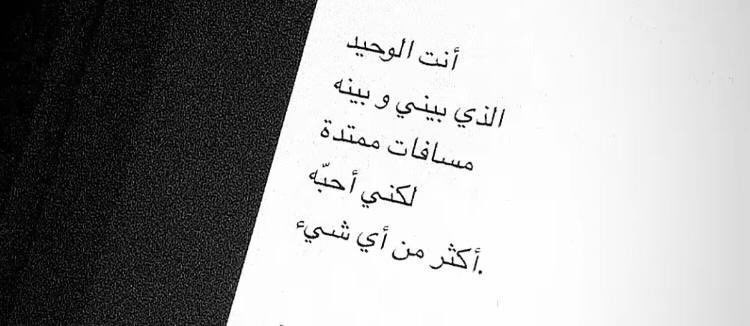 أنت الوحيد
الذي بيني و بينه
مسافات ممتدة
لكني أحبّه
أكثر من أي شيء.